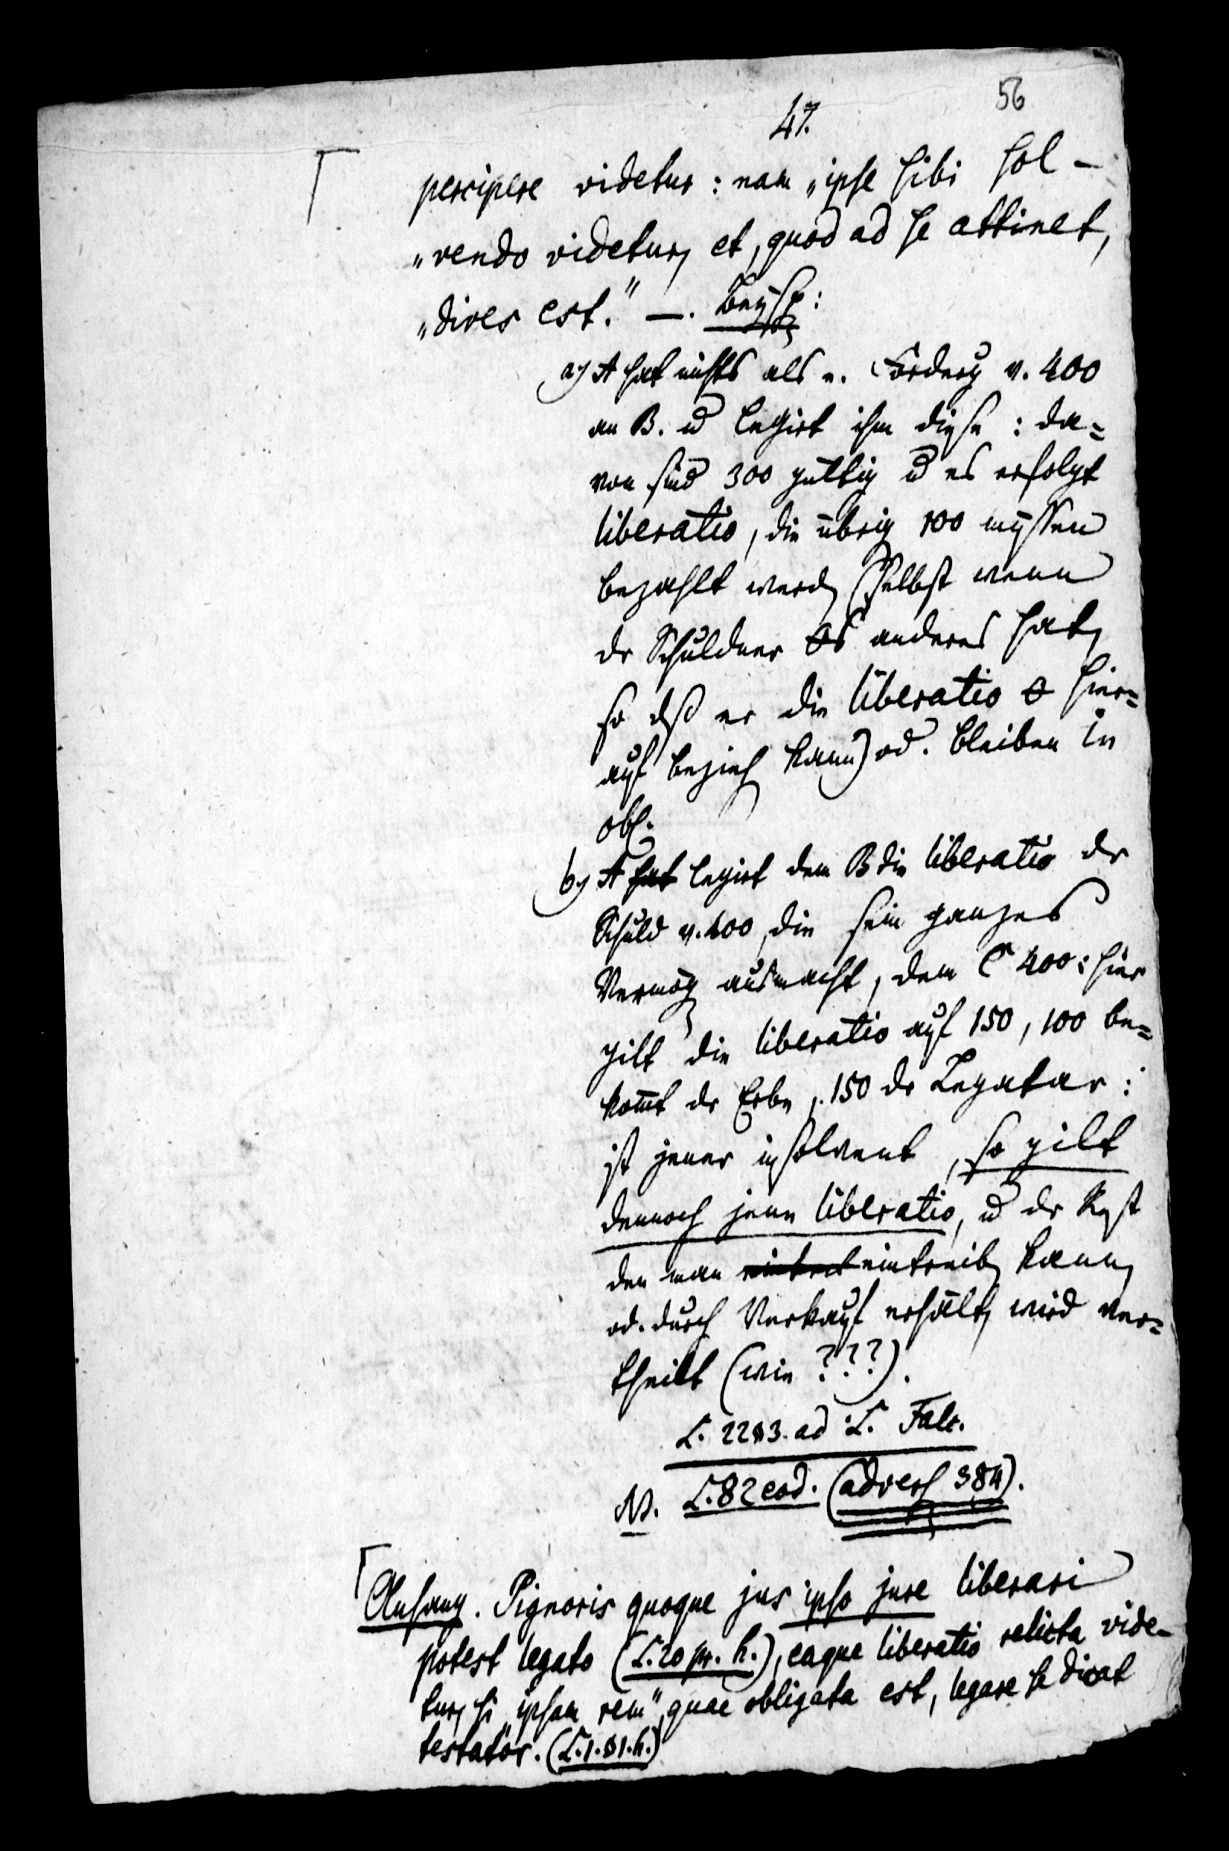 56
47.
percipere videtur: nam „ipse sibi sol-
„vendo videtur, et, quod ad se attinet,
„dives est." —. Beysp:
a) A hat nichts als e. Forderg v. 400
an B. u legirt ihm diese: da=
von sind 300 gültig u es erfolgt
liberatio, die übrig 100 müssen
bezahlt werd (selbst wenn
dr Schuldner 0s anderes hat,
so dß er die liberatio 0 hier=
auf bezieh kann) od. bleiben in
obl.
b) A hat legirt dem B die liberatio dr
Schuld v. 400, die sein ganzes
Vermög ausmacht, dem C 400: hier
gilt die liberatio auf 150, 100 be=
komt dr Erbe, 150 dr Legatar:
ist jener insolvent, so gilt
dennoch jene liberatio, u dr Rest
den man eintreib kann,
od. durch Verkauf erhält, wird ver=
theilt (wie ???).
L. 22 §3. ad L. Falc.
L. 82 eod. (advers 384).
Anhang. Pignoris quoque jus ipso jure liberari
potest legato (L. 20 pr. h.), eaque liberatio relicta vide-
tur, si „ipsam rem", quae obligata est, legare se dicat
testator. (L. 1. §1. h.)